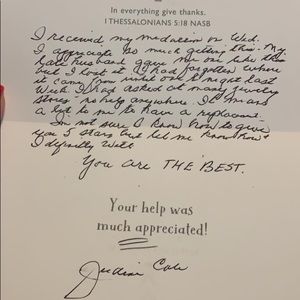 In everything give thanks.
I THESSALONIANS 5:18 NASB
I received my medallion on Wed.
I appreciate so much getting this. My
late husband gave me one like this
but I lost it & had forgotten where
it came from until one night last
week. I had asked at many jewelry
stores, no help anywhere. It means
a lot to me to have a replacement.
I'm not sure I know how to give
you 5 stars but let me know how &
I definitly will
You are THE BEST.
Your help was
much appreciated!